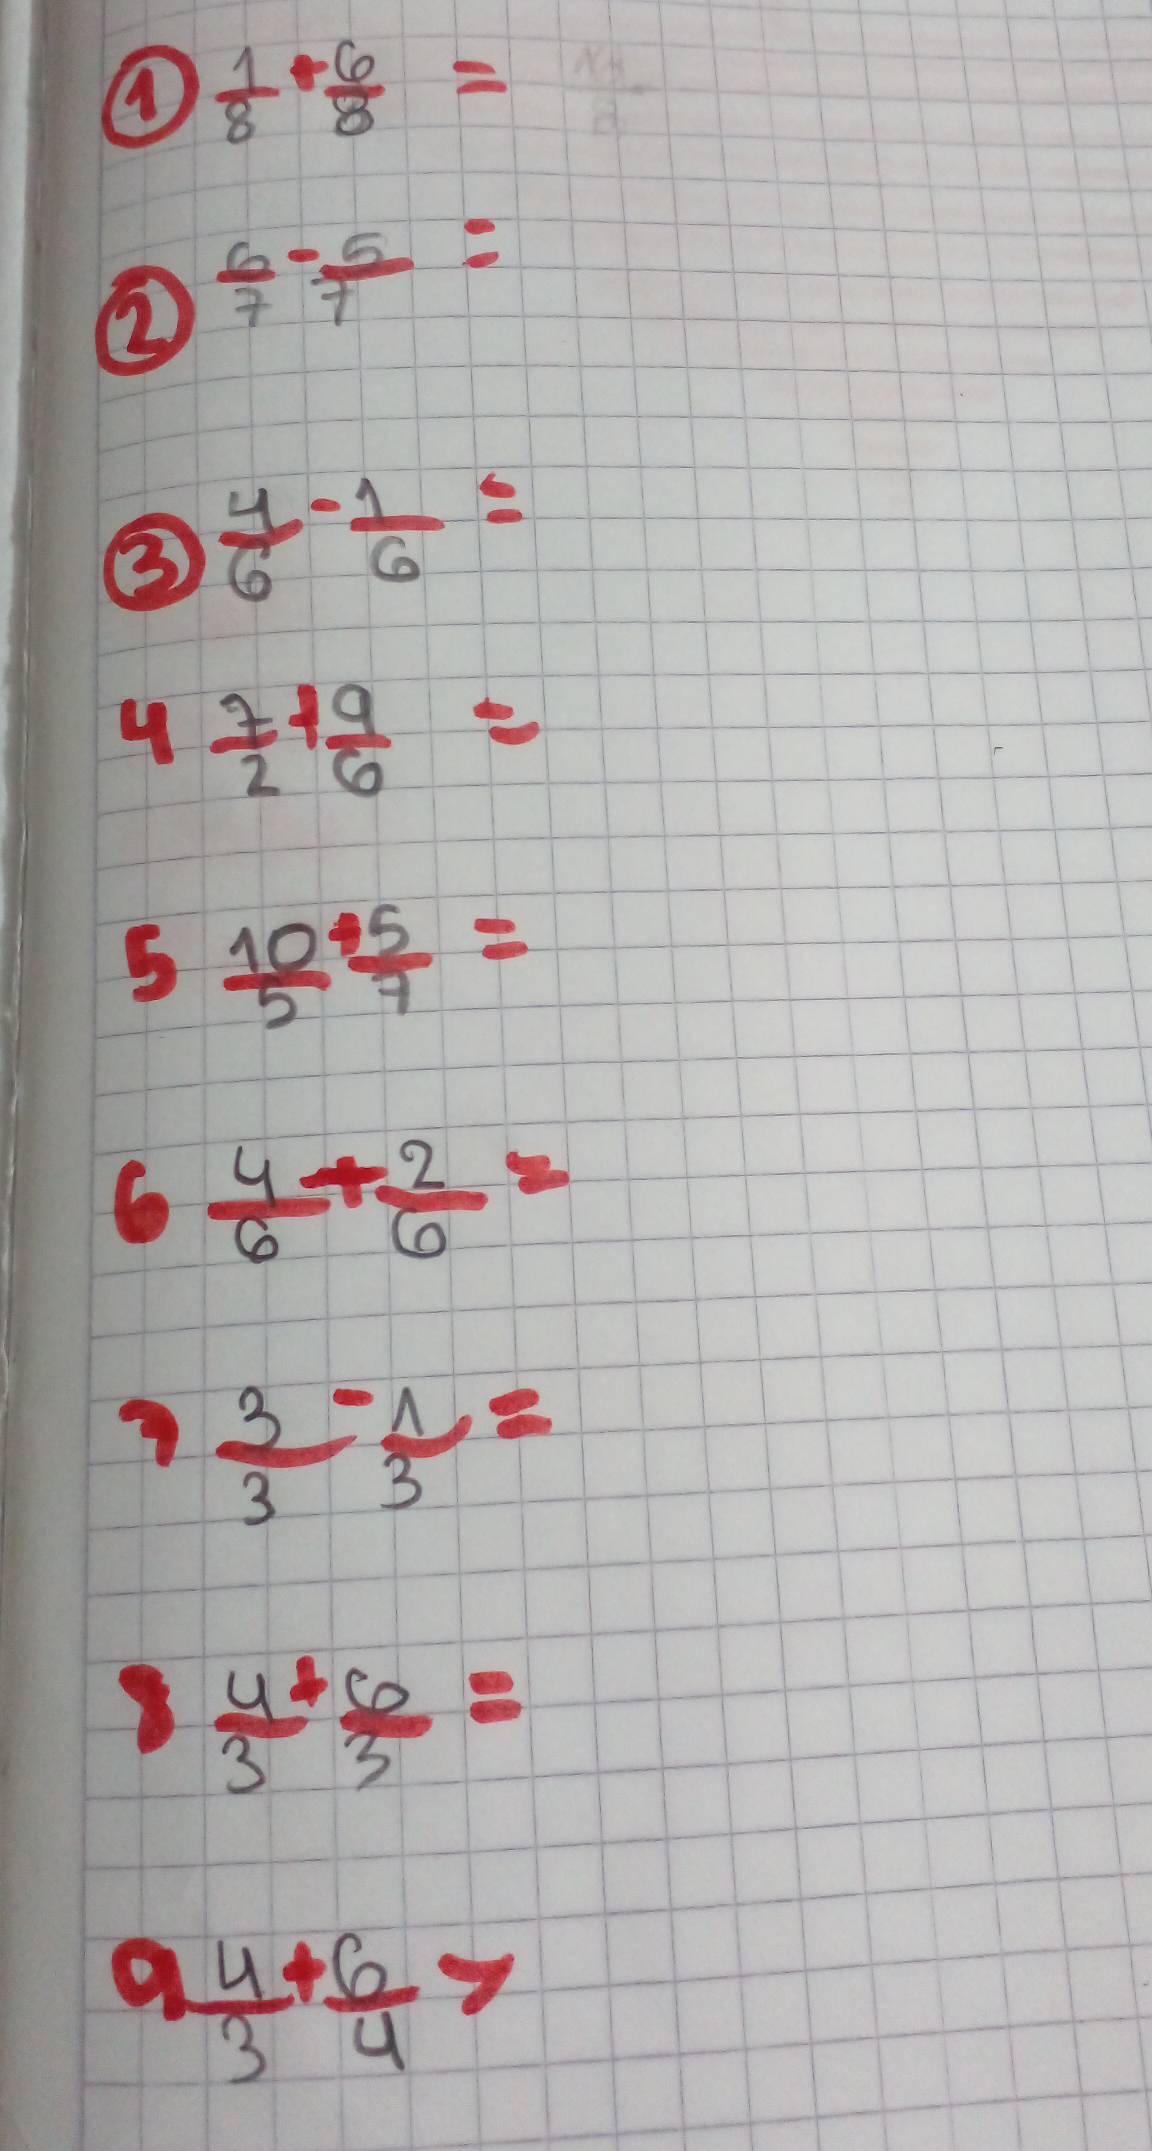 1 1/8 + 6/8 =
2 6/7 - 5/7 =
3 4/6 - 1/6 =
4 7/2 + 9/6 =
5 10/5 + 5/7 =
6 4/6 + 2/6 =
7 3/3 - 1/3 =
8 4/3 + 6/3 =
9 4/3 + 6/4 =